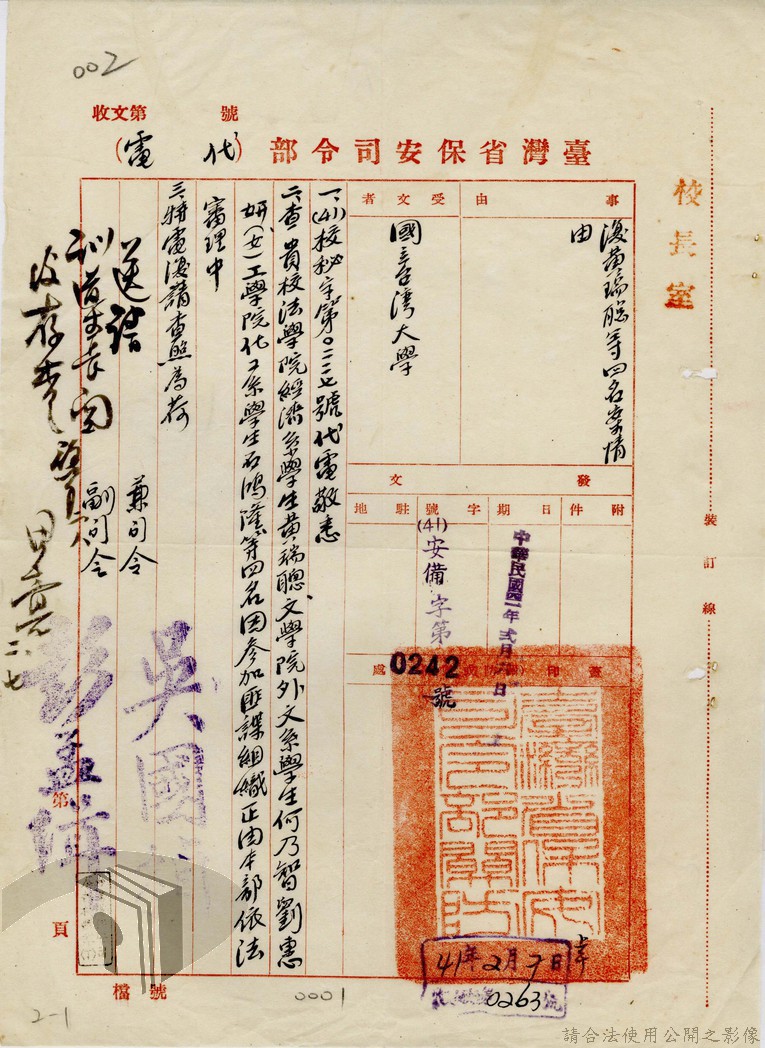 002
收文第 號
臺灣省保安司令部(代電)
校長室
事由
復黃瑞聰等四名案情由
受文者
國立台灣大學
發文
附件
日期
中華民國四一年弍月六日
字號
(41)安備字第0242號
駐地
蓋印
處
臺灣省保安司令部關防
一、(41)校秘字第〇二二七號代電敬悉
二、查貴校法學院經濟系學生黃瑞聰、文學院外文系學生何乃智、劉惠
妍(女)工學院化工系學生石鴻濱等四名因參加匪諜組織正由本部依法
審理中
三、特電復請查照為荷
兼司令 吳國楨
副司令 彭孟緝
送請
訓導長閱
後存查
二、七
41年2月7日
0263
裝訂線
第 頁
檔號
0001
2-1
請合法使用公開之影像